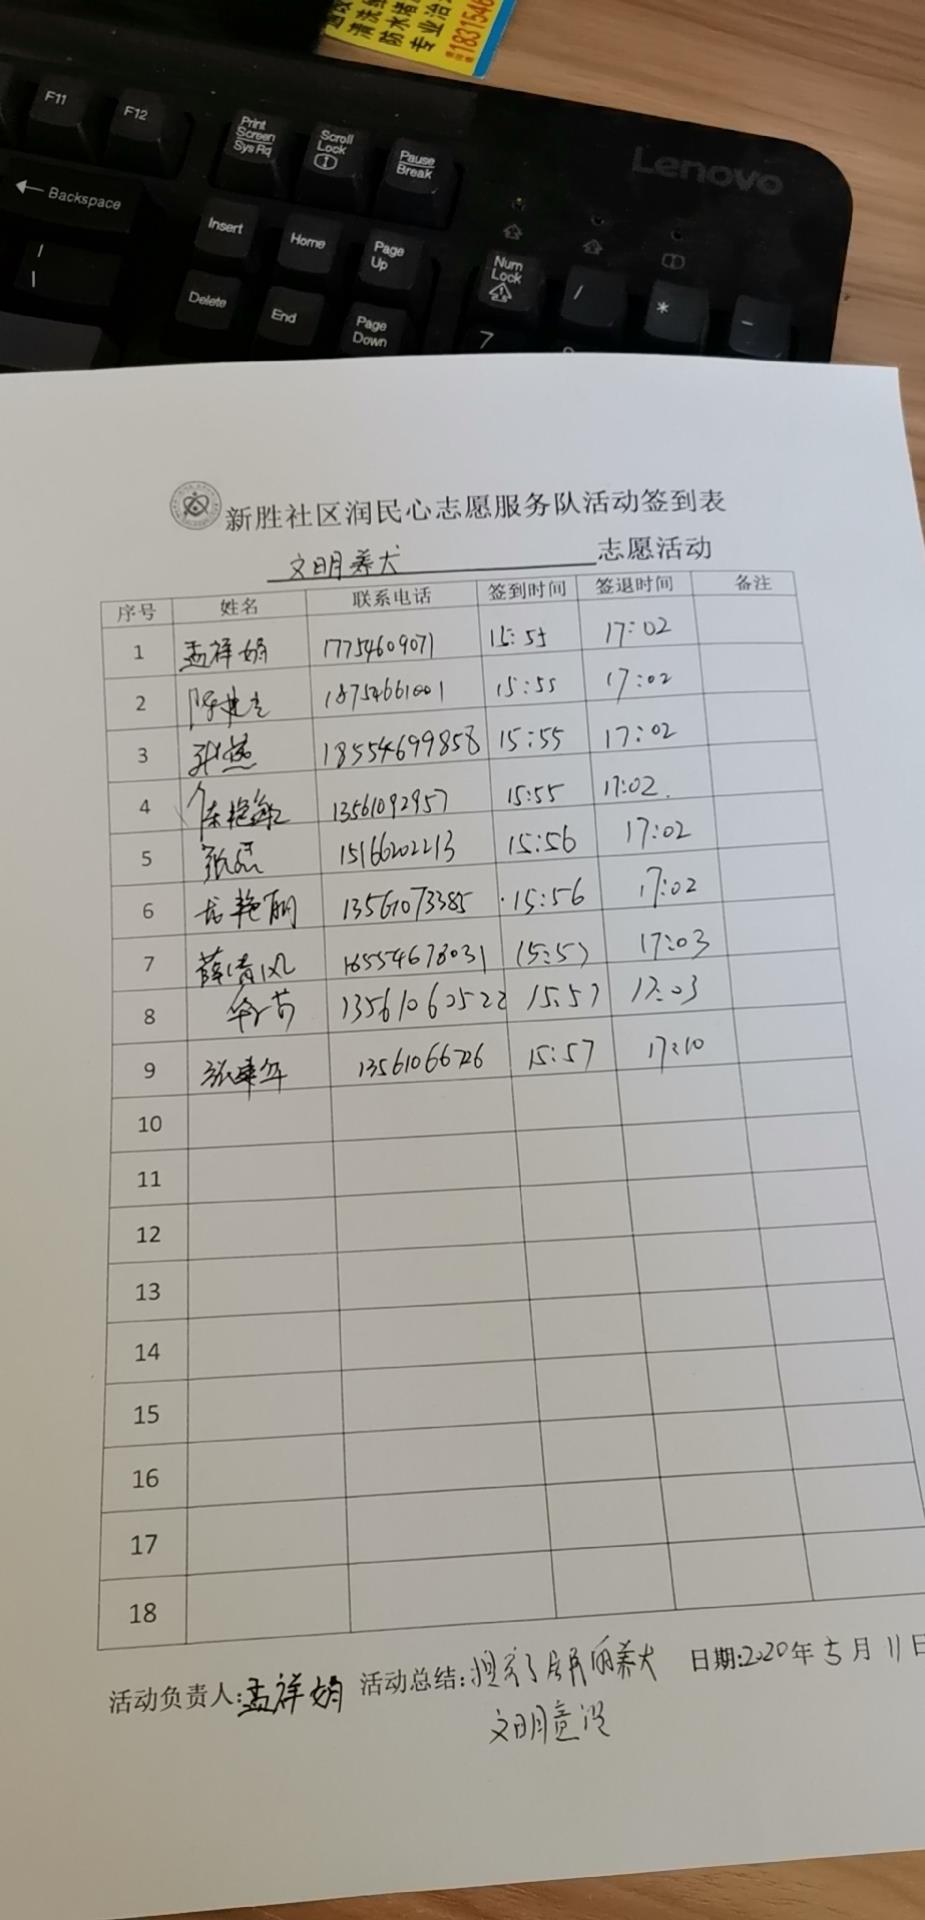 清洗
防水堵
专业治
1831546
F11
F12
Print Screen
Sys Rq
Scroll Lock
Pause
Break
Lenovo
← Backspace
Insert
Home
Page Up
Num Lock
/
*
-
Delete
End
Page Down
7
新胜社区润民心志愿服务队活动签到表
文明养犬 志愿活动
序号 姓名 联系电话 签到时间 签退时间 备注
1 孟祥娟 17754609071 15:55 17:02
2 陈建立 18754661001 15:55 17:02
3 张燕 18554699858 15:55 17:02
4 陈艳敏 13561092957 15:55 17:02
5 张 15166202213 15:56 17:02
6 艳丽 13561073385 15:56 17:02
7 薛清风 18554678031 15:57 17:03
8 13561062522 15:57 17:03
9 张建军 13561066726 15:57 17:10
10
11
12
13
14
15
16
17
18
活动负责人:孟祥娟 活动总结:提高了居民的养犬 日期:2020年5月11日
文明意识